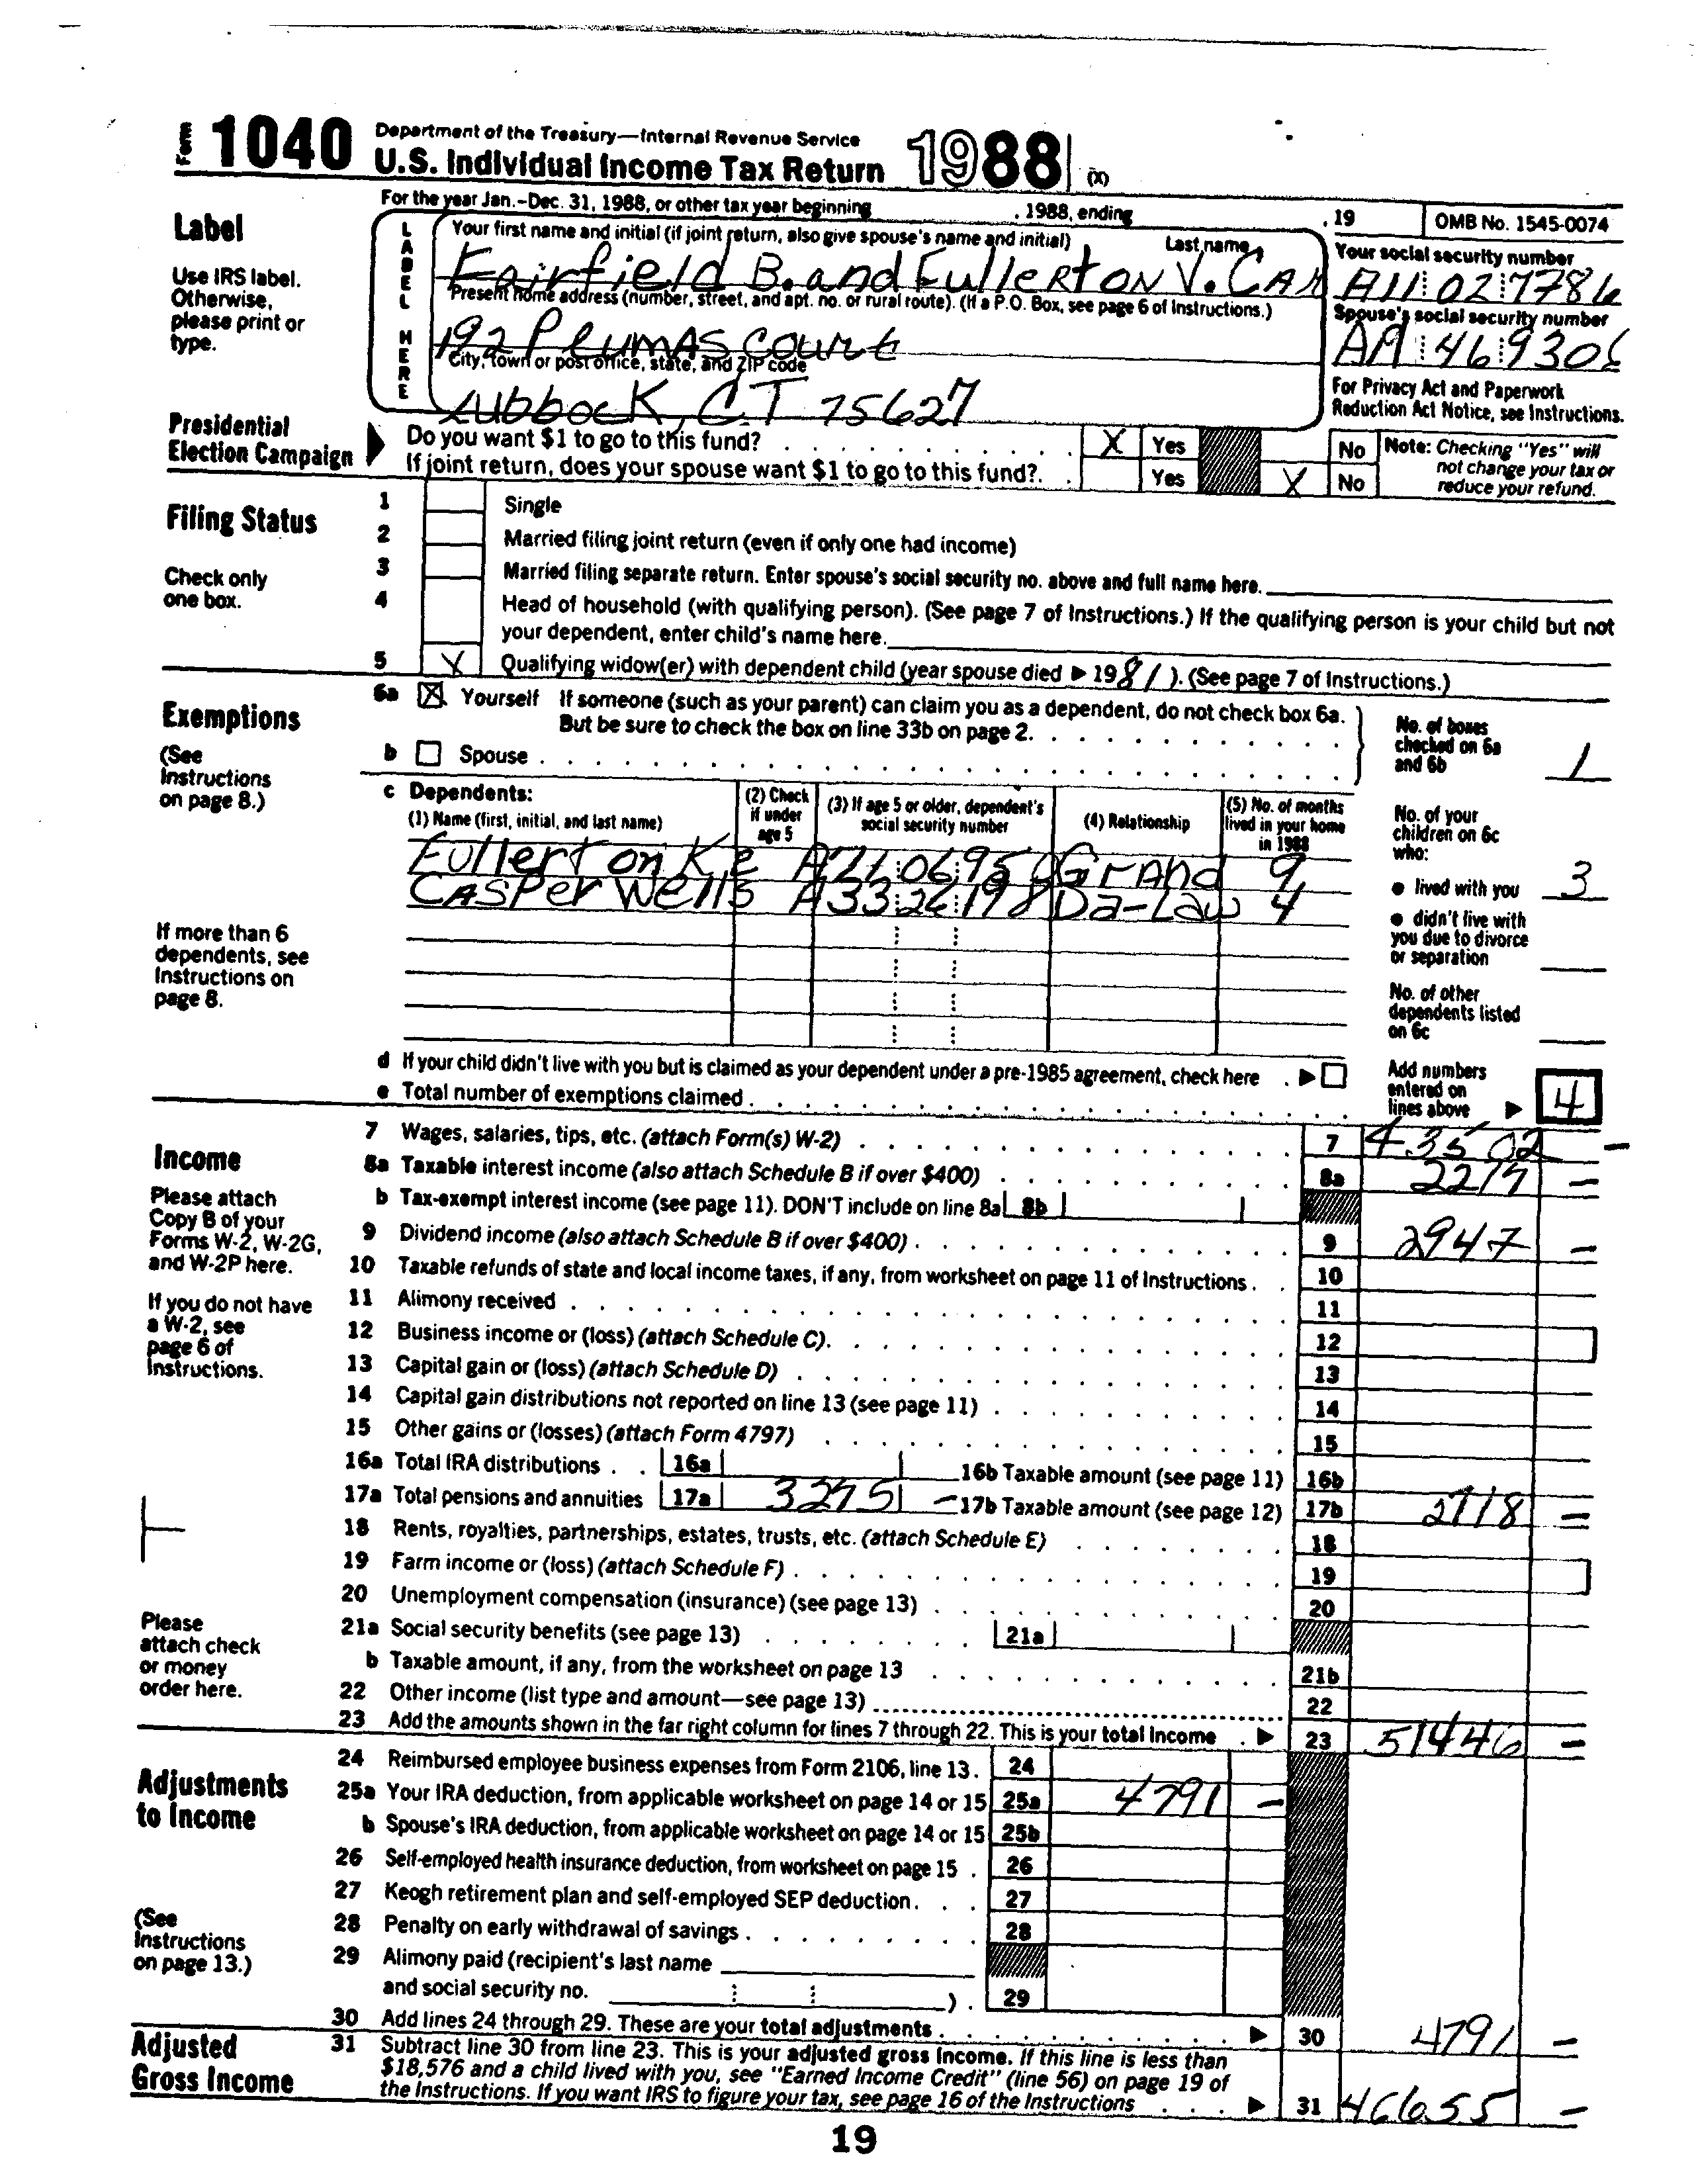 Form 1040 Department of the Treasury—Internal Revenue Service
U.S. Individual Income Tax Return 1988 (X)
For the year Jan.-Dec. 31, 1988, or other tax year beginning , 1988, ending , 19 OMB No. 1545-0074
Label
Use IRS label. Otherwise, please print or type.
LABEL HERE
Your first name and initial (if joint return, also give spouse's name and initial) Last name
Fairfield B. and Fullerton V.
Your social security number
A11 02 7786
Present home address (number, street, and apt. no. or rural route). (If a P.O. Box, see page 6 of Instructions.)
192 Plumas Court
Spouse's social security number
City, town or post office, state, and ZIP code
Lubbock, CT 75627
For Privacy Act and Paperwork Reduction Act Notice, see Instructions.
Presidential Election Campaign
Do you want $1 to go to this fund? X Yes No
If joint return, does your spouse want $1 to go to this fund? Yes X No
Note: Checking "Yes" will not change your tax or reduce your refund.
Filing Status
Check only one box.
1 Single
2 Married filing joint return (even if only one had income)
3 Married filing separate return. Enter spouse's social security no. above and full name here.
4 Head of household (with qualifying person). (See page 7 of Instructions.) If the qualifying person is your child but not
your dependent, enter child's name here.
5 X Qualifying widow(er) with dependent child (year spouse died ▶ 1981 ). (See page 7 of Instructions.)
Exemptions
(See Instructions on page 8.)
6a X Yourself If someone (such as your parent) can claim you as a dependent, do not check box 6a.
But be sure to check the box on line 33b on page 2.
b Spouse
No. of boxes checked on 6a and 6b 1
c Dependents:
(1) Name (first, initial, and last name) (2) Check if under age 5 (3) If age 5 or older, dependent's social security number (4) Relationship (5) No. of months lived in your home in 1988
Fullerton Ke Grand 9
Casper Wells A33 26 198 Da-Law 4
No. of your children on 6c who:
● lived with you 3
● didn't live with you due to divorce or separation
No. of other dependents listed on 6c
If more than 6 dependents, see Instructions on page 8.
d If your child didn't live with you but is claimed as your dependent under a pre-1985 agreement, check here ▶
e Total number of exemptions claimed
Add numbers entered on lines above ▶ 4
Income
Please attach Copy B of your Forms W-2, W-2G, and W-2P here.
If you do not have a W-2, see page 6 of Instructions.
7 Wages, salaries, tips, etc. (attach Form(s) W-2) 7 43502 –
8a Taxable interest income (also attach Schedule B if over $400) 8a 2279 –
b Tax-exempt interest income (see page 11). DON'T include on line 8a 8b
9 Dividend income (also attach Schedule B if over $400) 9 2947 –
10 Taxable refunds of state and local income taxes, if any, from worksheet on page 11 of Instructions. 10
11 Alimony received 11
12 Business income or (loss) (attach Schedule C). 12
13 Capital gain or (loss) (attach Schedule D) 13
14 Capital gain distributions not reported on line 13 (see page 11) 14
15 Other gains or (losses) (attach Form 4797) 15
16a Total IRA distributions 16a 16b Taxable amount (see page 11) 16b
17a Total pensions and annuities 17a 3275 – 17b Taxable amount (see page 12) 17b 2718 –
18 Rents, royalties, partnerships, estates, trusts, etc. (attach Schedule E) 18
19 Farm income or (loss) (attach Schedule F) 19
20 Unemployment compensation (insurance) (see page 13) 20
Please attach check or money order here.
21a Social security benefits (see page 13) 21a
b Taxable amount, if any, from the worksheet on page 13 21b
22 Other income (list type and amount—see page 13) 22
23 Add the amounts shown in the far right column for lines 7 through 22. This is your total income ▶ 23 51446 –
Adjustments to Income
(See Instructions on page 13.)
24 Reimbursed employee business expenses from Form 2106, line 13. 24
25a Your IRA deduction, from applicable worksheet on page 14 or 15 25a 4791 –
b Spouse's IRA deduction, from applicable worksheet on page 14 or 15 25b
26 Self-employed health insurance deduction, from worksheet on page 15 26
27 Keogh retirement plan and self-employed SEP deduction 27
28 Penalty on early withdrawal of savings 28
29 Alimony paid (recipient's last name
and social security no. ) 29
30 Add lines 24 through 29. These are your total adjustments ▶ 30 4791 –
Adjusted Gross Income
31 Subtract line 30 from line 23. This is your adjusted gross income. If this line is less than
$18,576 and a child lived with you, see "Earned Income Credit" (line 56) on page 19 of
the Instructions. If you want IRS to figure your tax, see page 16 of the Instructions ▶ 31 46655 –
19